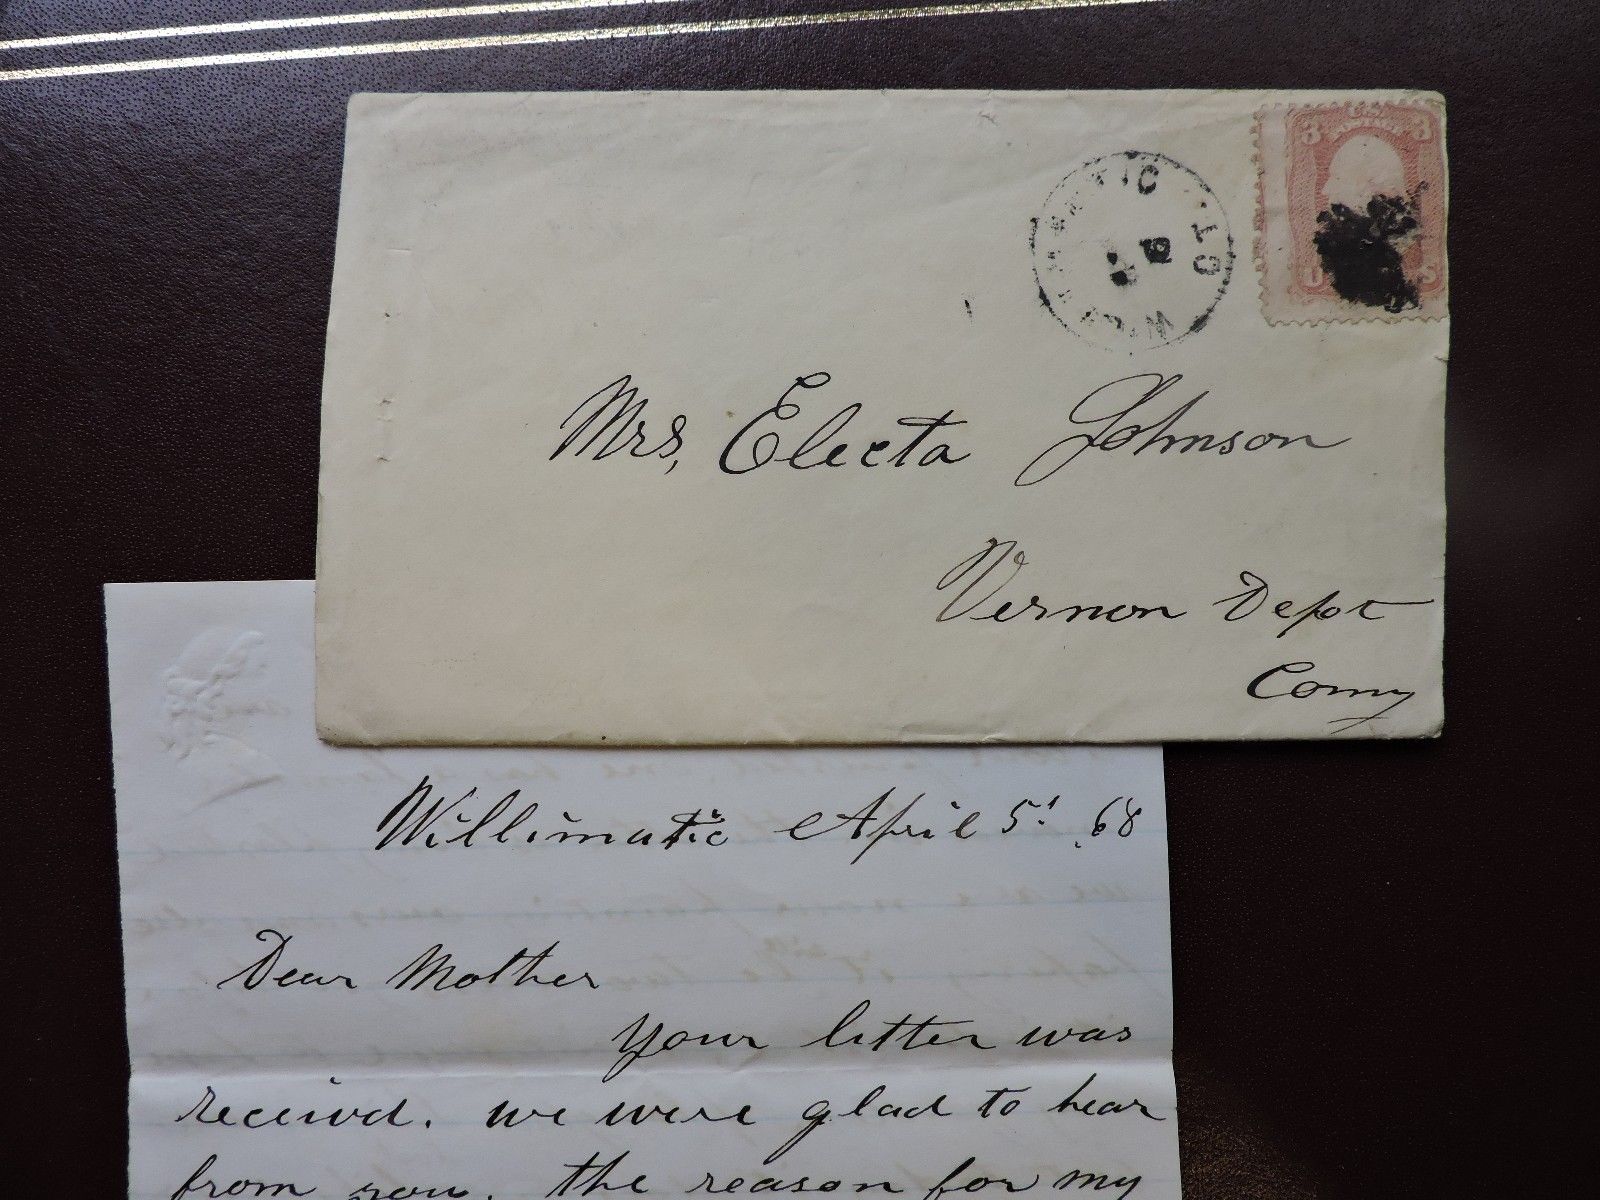 3 3
U S
WILLIMANTIC CT.
Mrs, Electa Johnson
Vernon Depot
Conny
Willimatic April 5' .68
Dear Mother
Your letter was
receivd. we were glad to hear
from you. the reason for my